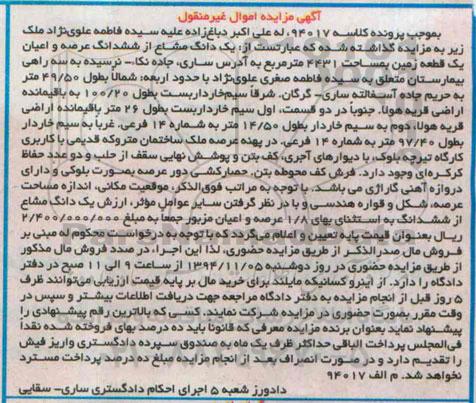 آگهی مزایده اموال غیرمنقول
بموجب پرونده کلاسه ۹۴۰۱۷، له علی اکبر دباغ‌زاده علیه سیده فاطمه علوی‌نژاد ملک
زیر به مزایده گذاشته شده که عبارتست از: یک دانگ مشاع از ششدانگ عرصه و اعیان
یک قطعه زمین بمساحت ۴۴۳۱ مترمربع به آدرس ساری، جاده نکا- نرسیده به سه راهی
بیمارستان متعلق به سیده فاطمه صغری علوی‌نژاد با حدود اربعه: شمالاً بطول ۴۹/۵۰ متر
به حریم جاده آسفالته ساری- گرگان. شرقاً سیم‌خارداربست بطول ۱۰۰/۲۰ به باقیمانده
اراضی قریه هولا. جنوباً در دو قسمت، اول سیم خارداربست بطول ۲۶ متر باقیمانده اراضی
قریه هولا. دوم به سیم خاردار بطول ۱۴/۵۰ متر به شماره ۱۴ فرعی. غرباً به سیم خاردار
بطول ۹۷/۴۰ متر به شماره ۱۴ فرعی. در پهنه عرصه ملک ساختمان متروکه قدیمی با کاربری
کارگاه تیرچه بلوک، با دیوارهای آجری، کف بتن و پوشش نهایی سقف از حلب و دو عدد حفاظ
کرکره‌ای وجود دارد. فرش کف محوطه بتن. حصارکشی دور عرصه بصورت بلوکی و دارای
دروازه آهنی گاراژی می باشد. با توجه به مراتب فوق‌الذکر، موقعیت مکانی، اندازه مساحت
عرصه، شکل و قواره هندسی و با در نظر گرفتن سایر عوامل مؤثر، ارزش یک دانگ مشاع
از ششدانگ به استثنای بهای ۱/۸ عرصه و اعیان مزبور جمعاً به مبلغ ۲/۴۰۰/۰۰۰/۰۰۰
ریال بعنوان قیمت پایه تعیین و اعلام می‌گردد که با توجه به درخواست محکوم له مبنی بر
فروش مال صدرالذکر از طریق مزایده حضوری، لذا این اجرا، در صدد فروش مال مذکور
از طریق مزایده حضوری در روز دوشنبه ۱۳۹۴/۱۱/۰۵ از ساعت ۹ الی ۱۱ صبح در دفتر
دادگاه را دارد. از اینرو کسانیکه مایلند برای خرید مال بر پایه قیمت ارزیابی می‌توانند ظرف
۵ روز قبل از انجام مزایده به دفتر دادگاه مراجعه جهت دریافت اطلاعات بیشتر و سپس در
وقت مقرر بصورت حضوری در مزایده شرکت نمایند. کسی که بالاترین رقم پیشنهادی را
پیشنهاد نماید بعنوان برنده مزایده معرفی که قانونا باید ده درصد بهای فروخته شده نقدا
فی‌المجلس پرداخت الباقی حداکثر ظرف یک ماه به صندوق سپرده دادگستری واریز فیش
را تقدیم دارد و در صورت انصراف بعد از انجام مزایده مبلغ ده درصد پرداخت مسترد
نخواهد شد. م الف ۹۴۰۱۷
دادورز شعبه ۵ اجرای احکام دادگستری ساری- سقایی